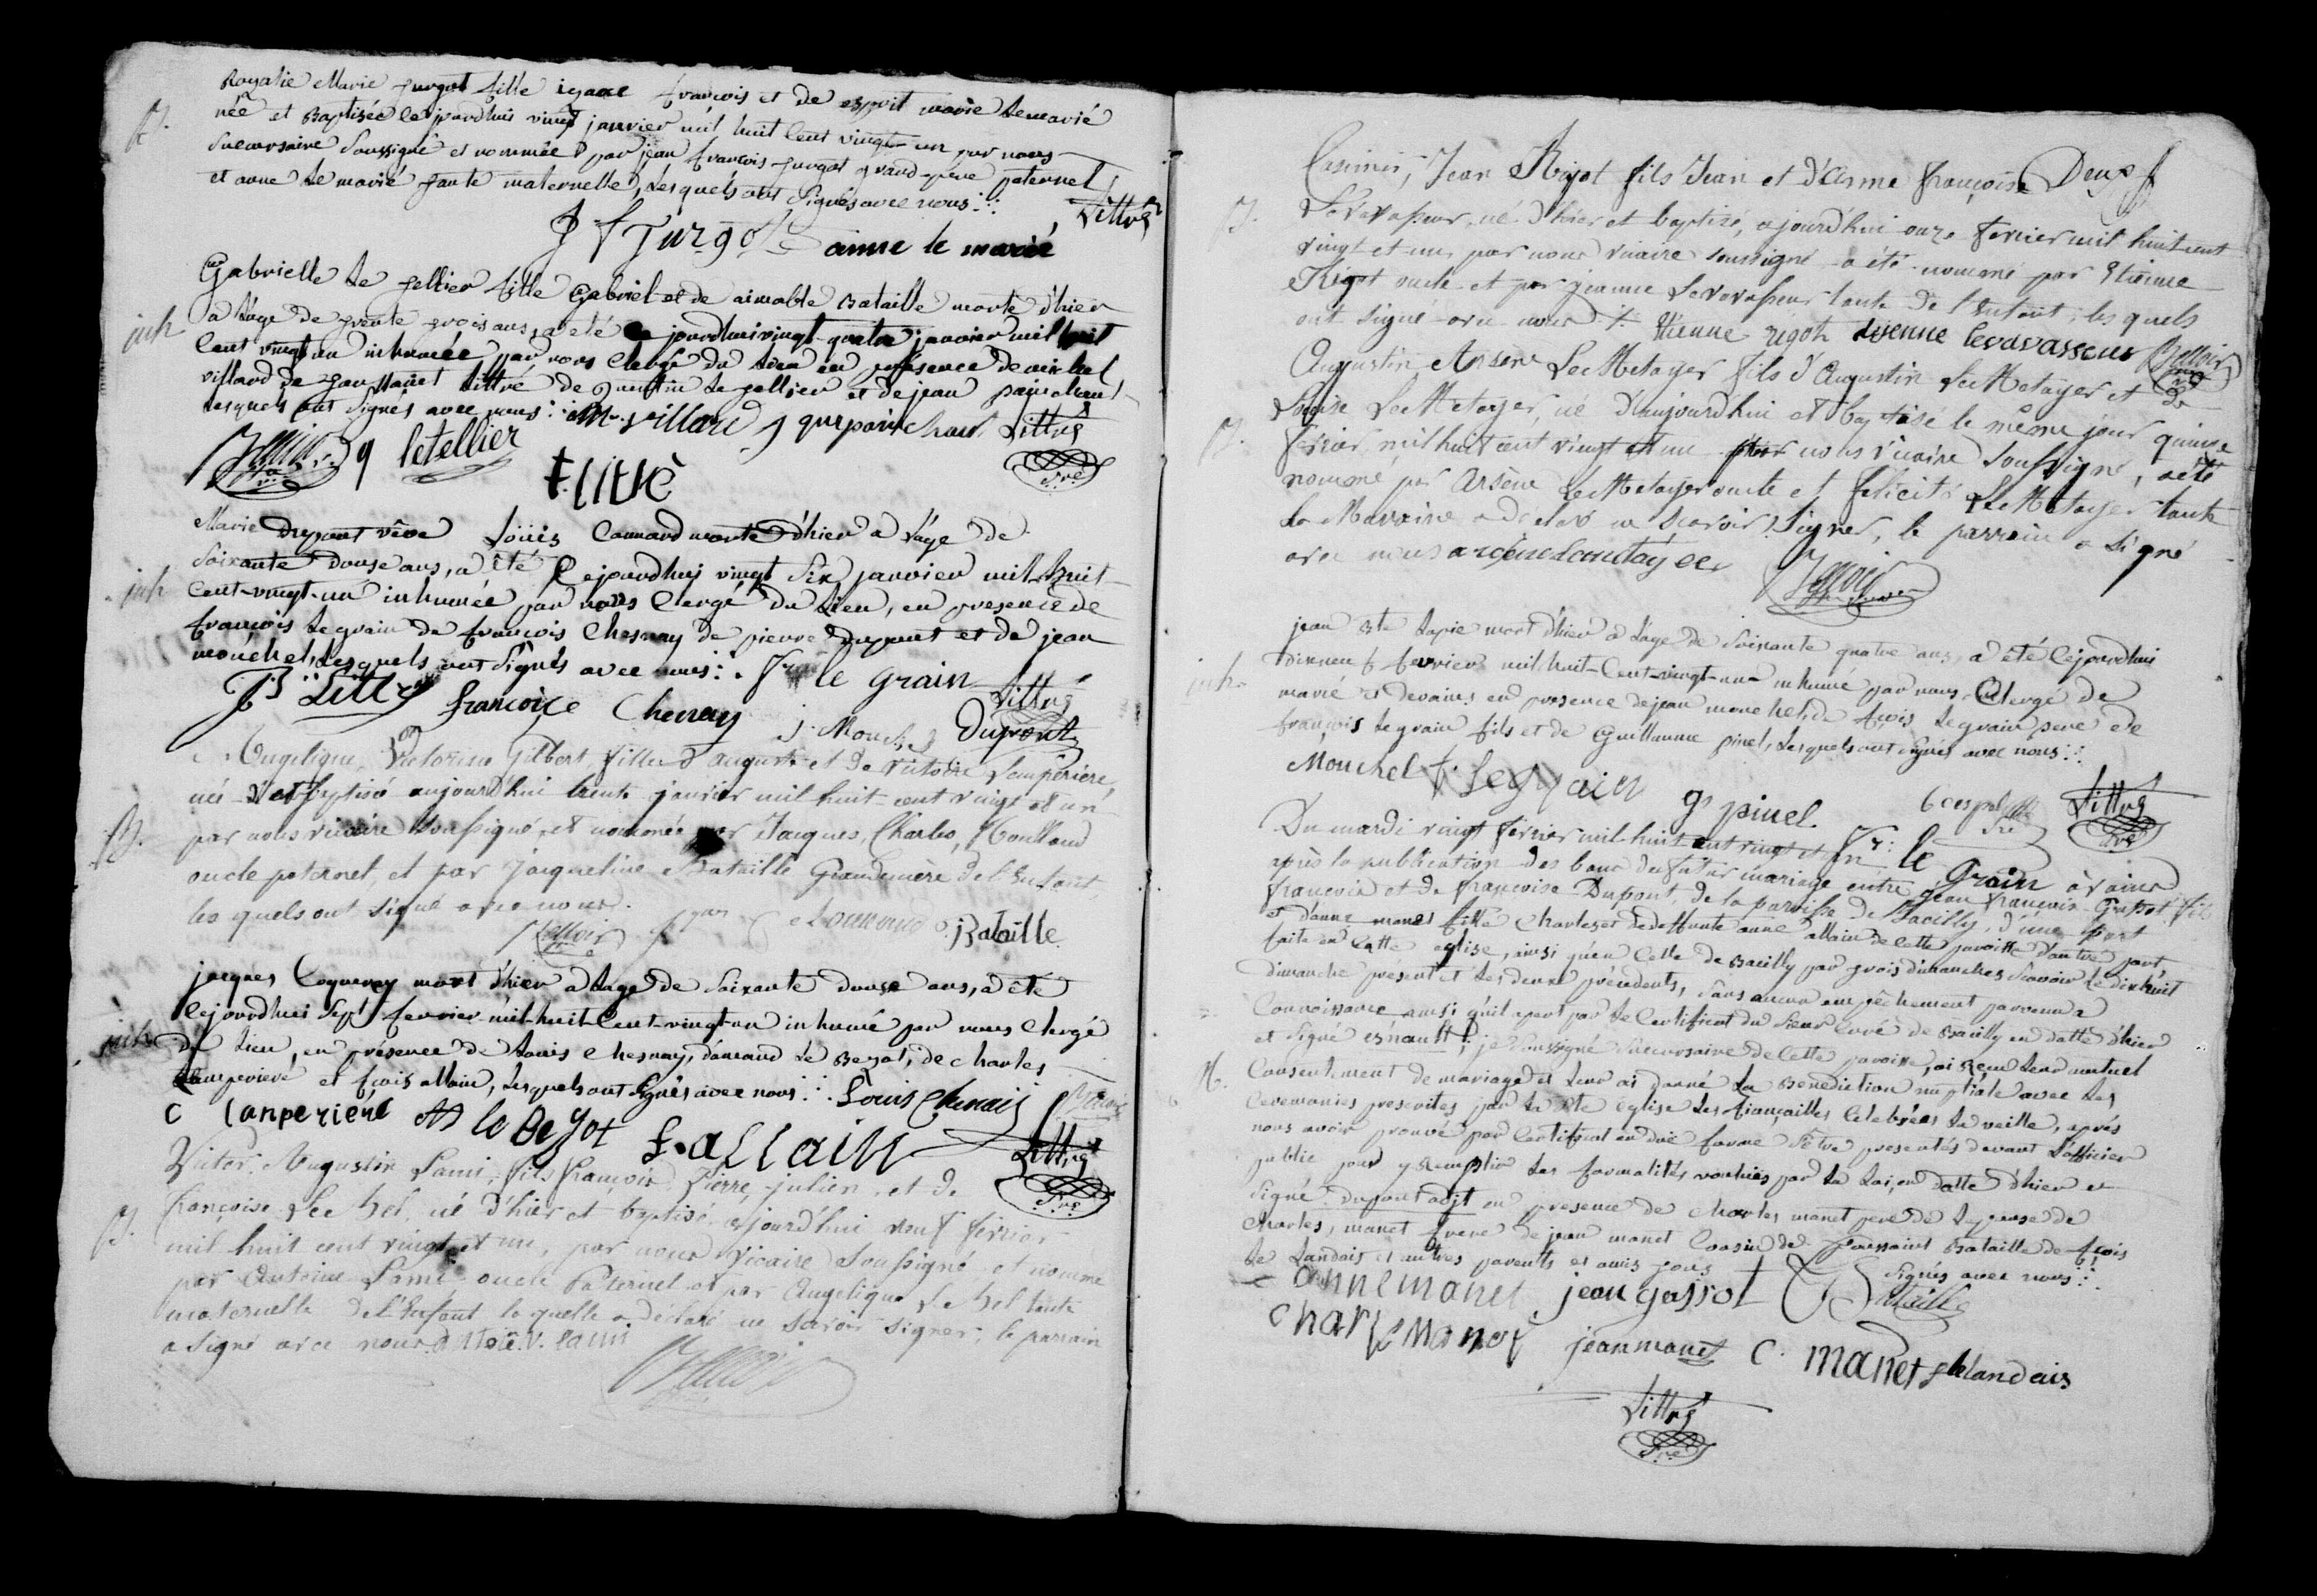 Rosalie Marie Turgot fille ignace françois et de esprit marie Lemarié
B.
née et Baptisée cejourdhui vingt janvier mil huit Cent vingt-un par nous
Succursaire Soussigné et nommée par jean françois Turgot grand-père paternel
et anne Le marié tante maternelle, Lesquels ont Signés avec nous
Littré
J f Turgot anne le marié
Gabrielle Le Tellier fille Gabriel et de aimable Bataille morte d'hier
inh
a L'age de trente trois ans, a été Ce jourdhui vingt-quatre janvier mil huit
Cent vingt un inhumée par nous Clergé du Lieu en présence de michel
villard de Littré de quentin Le Tellier et de jean painchaut
Lesquels ont Signés avec nous M. villard J painchaut Littré
q letellier
pre
f. littré
Marie Dupont vêve Loüis Connard morte d'hier a L'age de
Soixante douse ans, a été Cejourdhuj vingt Six janvier mil huit-
inh
Cent-vingt-un inhumée par nous Clergé du Lieu, en presence de
françois Legrain de françois Chesnay de pierre Dupont et de jean
mouchel, Lesquels ont Signés avec nous: fr le grain
Littré
françoice Chenay j. Mouchel Dupont
Angelique Victorine Gilbert, fille d'auguste et de Victoire Lamperiere,
née et baptisée aujourd'hui trente janvier mil huit-cent vingt et un
B.
par nous vicaire soussigné et nommée par Jacques, Charles,
oncle paternel, et par Jacqueline Bataille Grandemère de l'Enfant,
les quels ont signé avec nous.
Bataille
jacques Coqueray mort d'hier a L'age de Soixante douse ans, a été
Cejourdhui Sept fevrier mil-huit-Cent-vingt-un inhumé par nous Clergé
inh
du Lieu, en présence de Louis Chesnay, d'amand Le Bezot, de charles
Lamperiere et fçois allain, Lesquels ont Signés avec nous: Louis Chenais
C lanperiere A le Beʒot f. allain
Littré
pre
Victor Augustin Lami, fils François, Pierre, julien, et de
françoise Lee bel, né d'hier et baptisé, ajourd'hui neuf fevrier
B.
mil huit cent vingt et un, par nous Vicaire soussigné et nommé
par Antoine Lami oncle Paternel et par Angelique Le bel tante
maternelle de l'Enfant laquelle a déclaré ne savoir signer; le parrain
a signé avec nous. V. lami
Casimir, Jean Rigot fils Jean et d'Anne françoise
B.
Levavasseur, né d'hier et baptisé, ajourd'hui onze fevrier mil huit cent
vingt et un, par nous vicaire soussigné a été nommé par Etienne
Rigot oncle et par jeanne Levavasseur tante de l'Enfant, les quels
ont signé avec nous. Etienne rigot levavasseur
Augustin Arsene Lee Metayer fils d'Augustin Lee Metayer et de
Louise Lee Metayer, né d'aujourd'hui et baptisé le même jour quinze
B.
fevrier mil huit cent vingt et un par nous vicaire soussigné, a été
nommé par Arsène Lee Metayer oncle et felicité Lee Metayer tante
la Marraine a déclaré ne scavoir signer, le parrain a signé
avec nous
jean Bte Lapie mort d'hier a L'age de Soixante quatre ans, a été Cejourdhui
inh.
dixneuf fevrier mil huit-Cent-vingt-un inhumé par nous Clergé de
en presence de jean mouchel, de fçois Legrain pere de
françois Legrain fils et de Guillaume pinel, Lesquels ont Signés avec nous:
Mouchel f. Legrain
gs pinel Littré
pre
fr. le grain
Du mardi vingt fevrier mil-huit cent vingt et un
après la publication des bans du futur mariage entre Jean François fils
françois et de françoise Dupont, de la paroisse de Bacilly, d'une part
et d'anne manet fille Charles et de deffunte anne allain de Cette paroisse d'autre part
faite en Cette église, ainsi qu'en Celle de Bacilly par trois dimanches Savoir Le dixhuit
dimanche présent et Les deux précédents, Sans aucun empêchement parvenu a
Connoissance ainsi qu'il apert par Le Certificat du Sieur Curé de Bacilly en datte d'hier
et Signé esnault; je Soussigné Succursaire de Cette paroisse, ai reçu Leur mutuel
M.
Consentement de mariage et Leur ai donné La Bénédiction nuptiale avec Les
Ceremonies prescrites par La Ste église Les fiançailles Celebrées La veille, après
nous avoir prouvé par Certificat en due forme S'être presentés devant L'officier
public pour y remplir Les formalités voulues par La Loi, en datte d'hier et
Signé Dupont adjt en presence de Charles manet pere de L'epouse de
Charles, manet frere de jean manet Cousin de Toussaint Bataille de fçois
Le Landais et autres parents et amis Signés avec nous:
anne manet jean gassot
Charle manet jean manet C. manet f le landais
Littré
pre